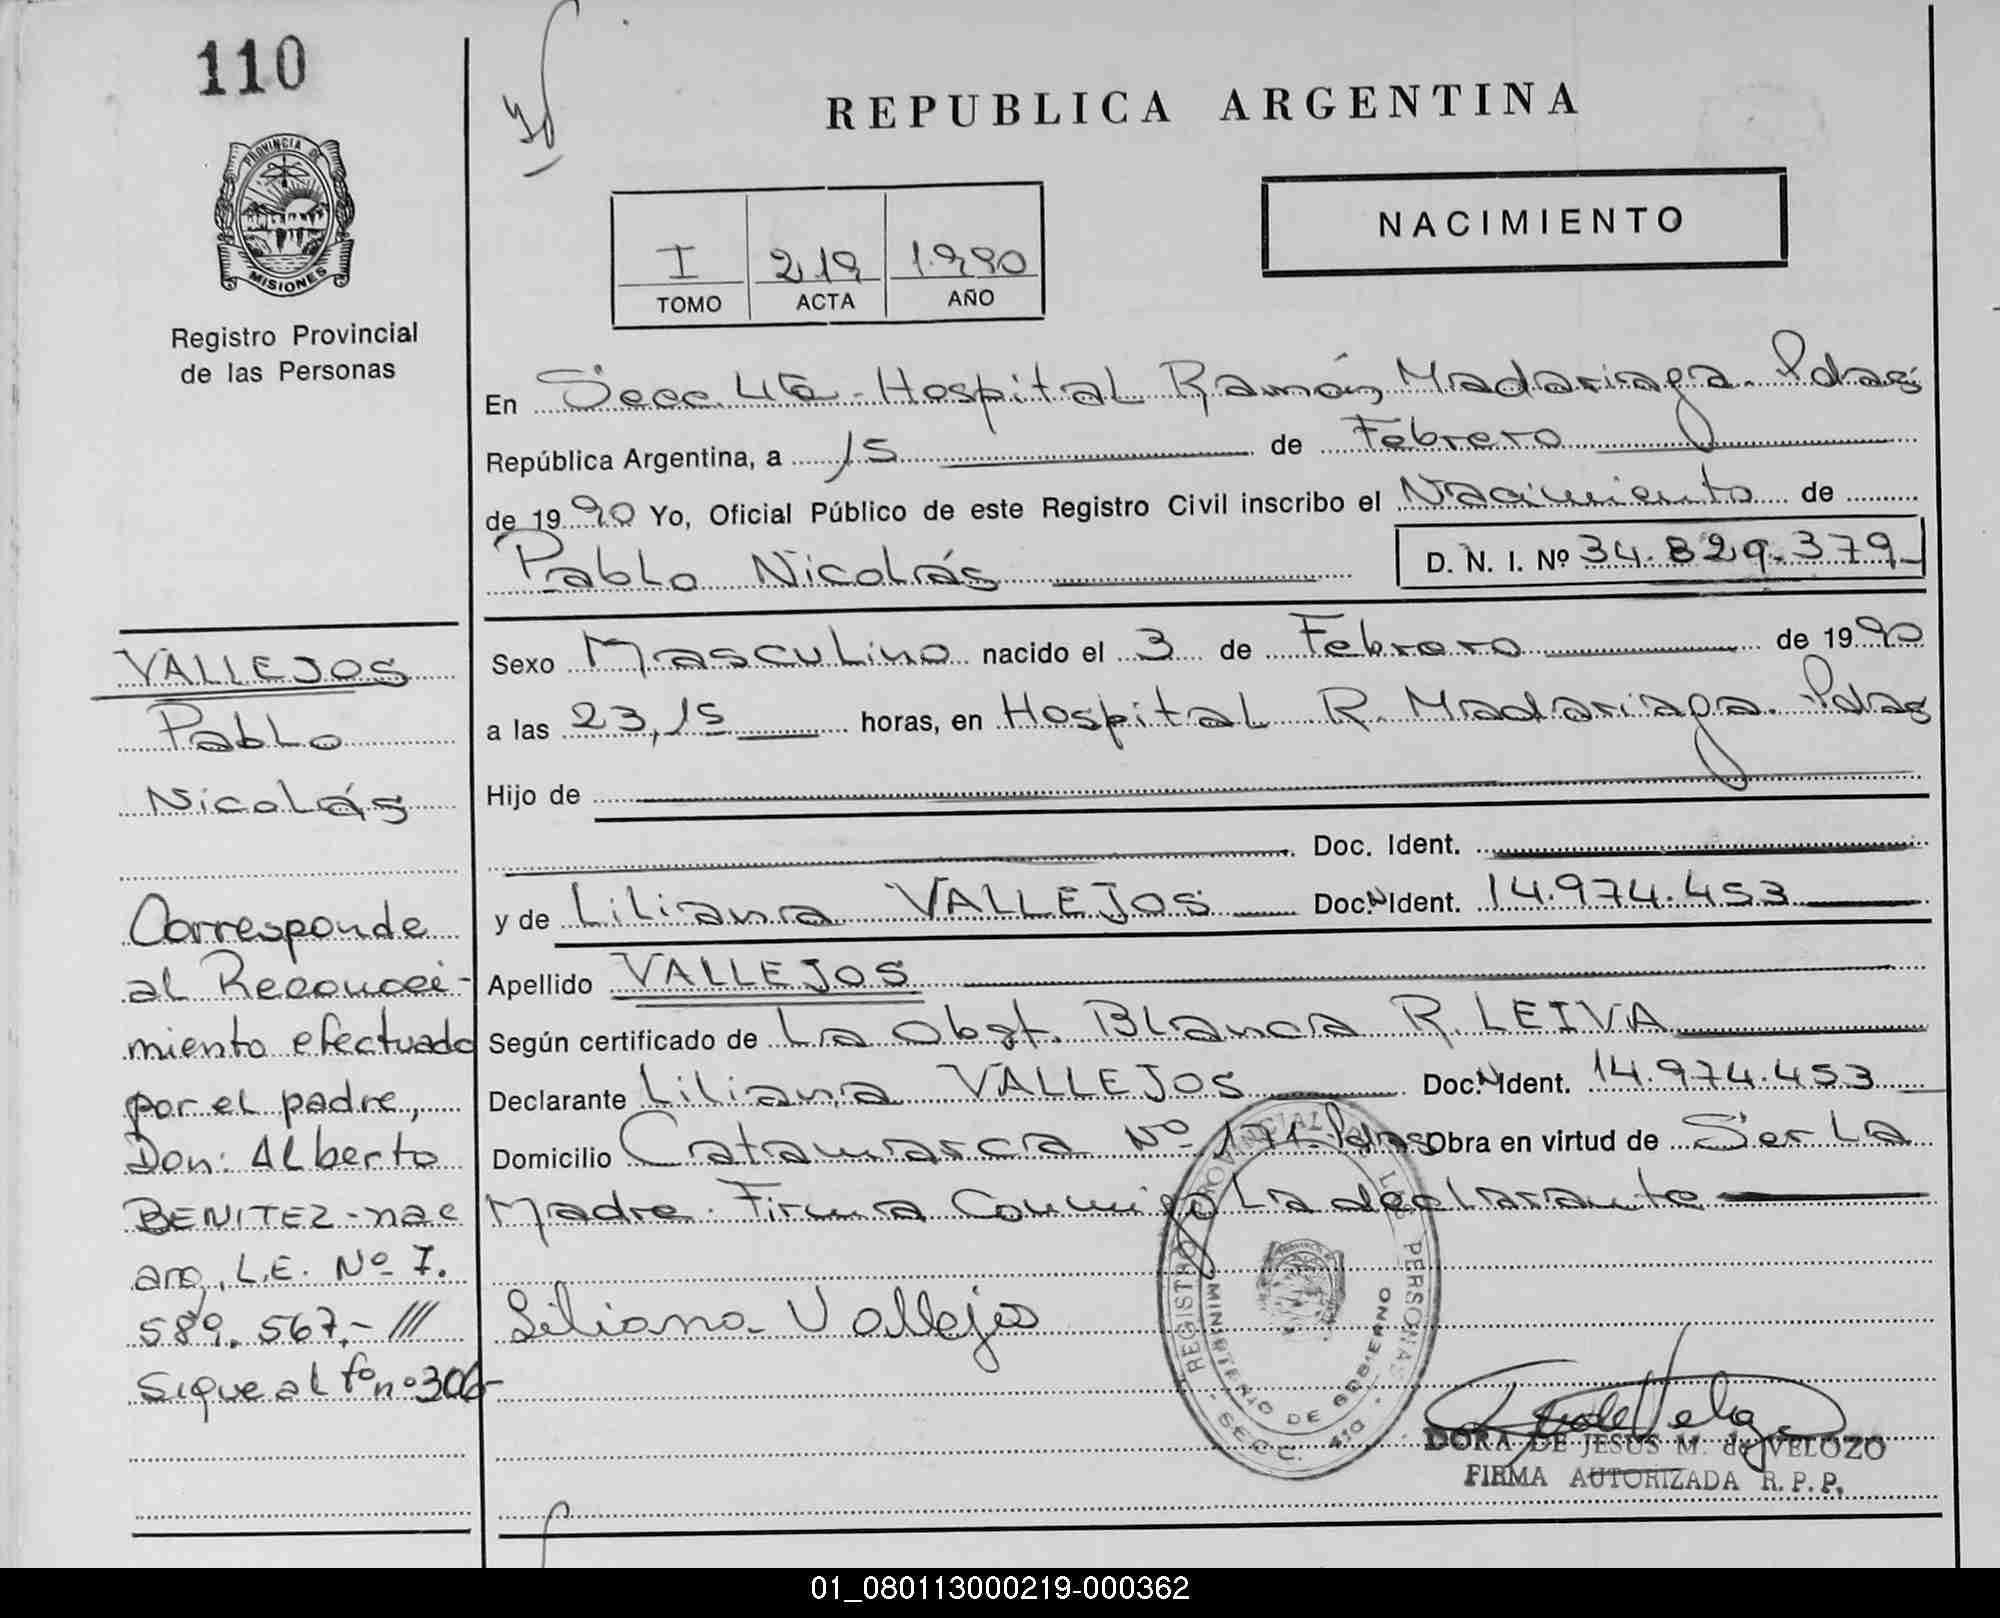 110
PROVINCIA DE
MISIONES
Registro Provincial
de las Personas
REPUBLICA ARGENTINA
NACIMIENTO
I 219 1.990
TOMO ACTA AÑO
En Secc. 4ta - Hospital Ramón Madariaga. Pdas
República Argentina, a 15 de Febrero
de 1990 Yo, Oficial Público de este Registro Civil inscribo el Nacimiento de
Pablo Nicolás D. N. I. Nº 34.829.379
Sexo Masculino nacido el 3 de Febrero de 1990
a las 23,15 horas, en Hospital R. Madariaga. Pdas
Hijo de
Doc. Ident.
y de Liliana VALLEJOS Doc.N Ident. 14.974.453
Apellido VALLEJOS
Según certificado de La Obst. Blanca R. LEIVA
Declarante Liliana VALLEJOS Doc.N Ident. 14.974.453
Domicilio Catamarca Nº 171. Pdas Obra en virtud de Ser La
Madre. Firma Conmigo La declarante
Liliana Vallejos
REGISTRO PROVINCIAL DE LAS PERSONAS
MINISTERIO DE GOBIERNO
SECC. 4ta
DORA DE JESUS M. de VELOZO
FIRMA AUTORIZADA R. P. P.
VALLEJOS
Pablo
Nicolás
Corresponde
al Reconoci-
miento efectuado
por el padre,
Don: Alberto
BENITEZ - nac
arg, L.E. Nº 7.
589.567.- ///
Sigue al fº nº 306-
01_080113000219-000362